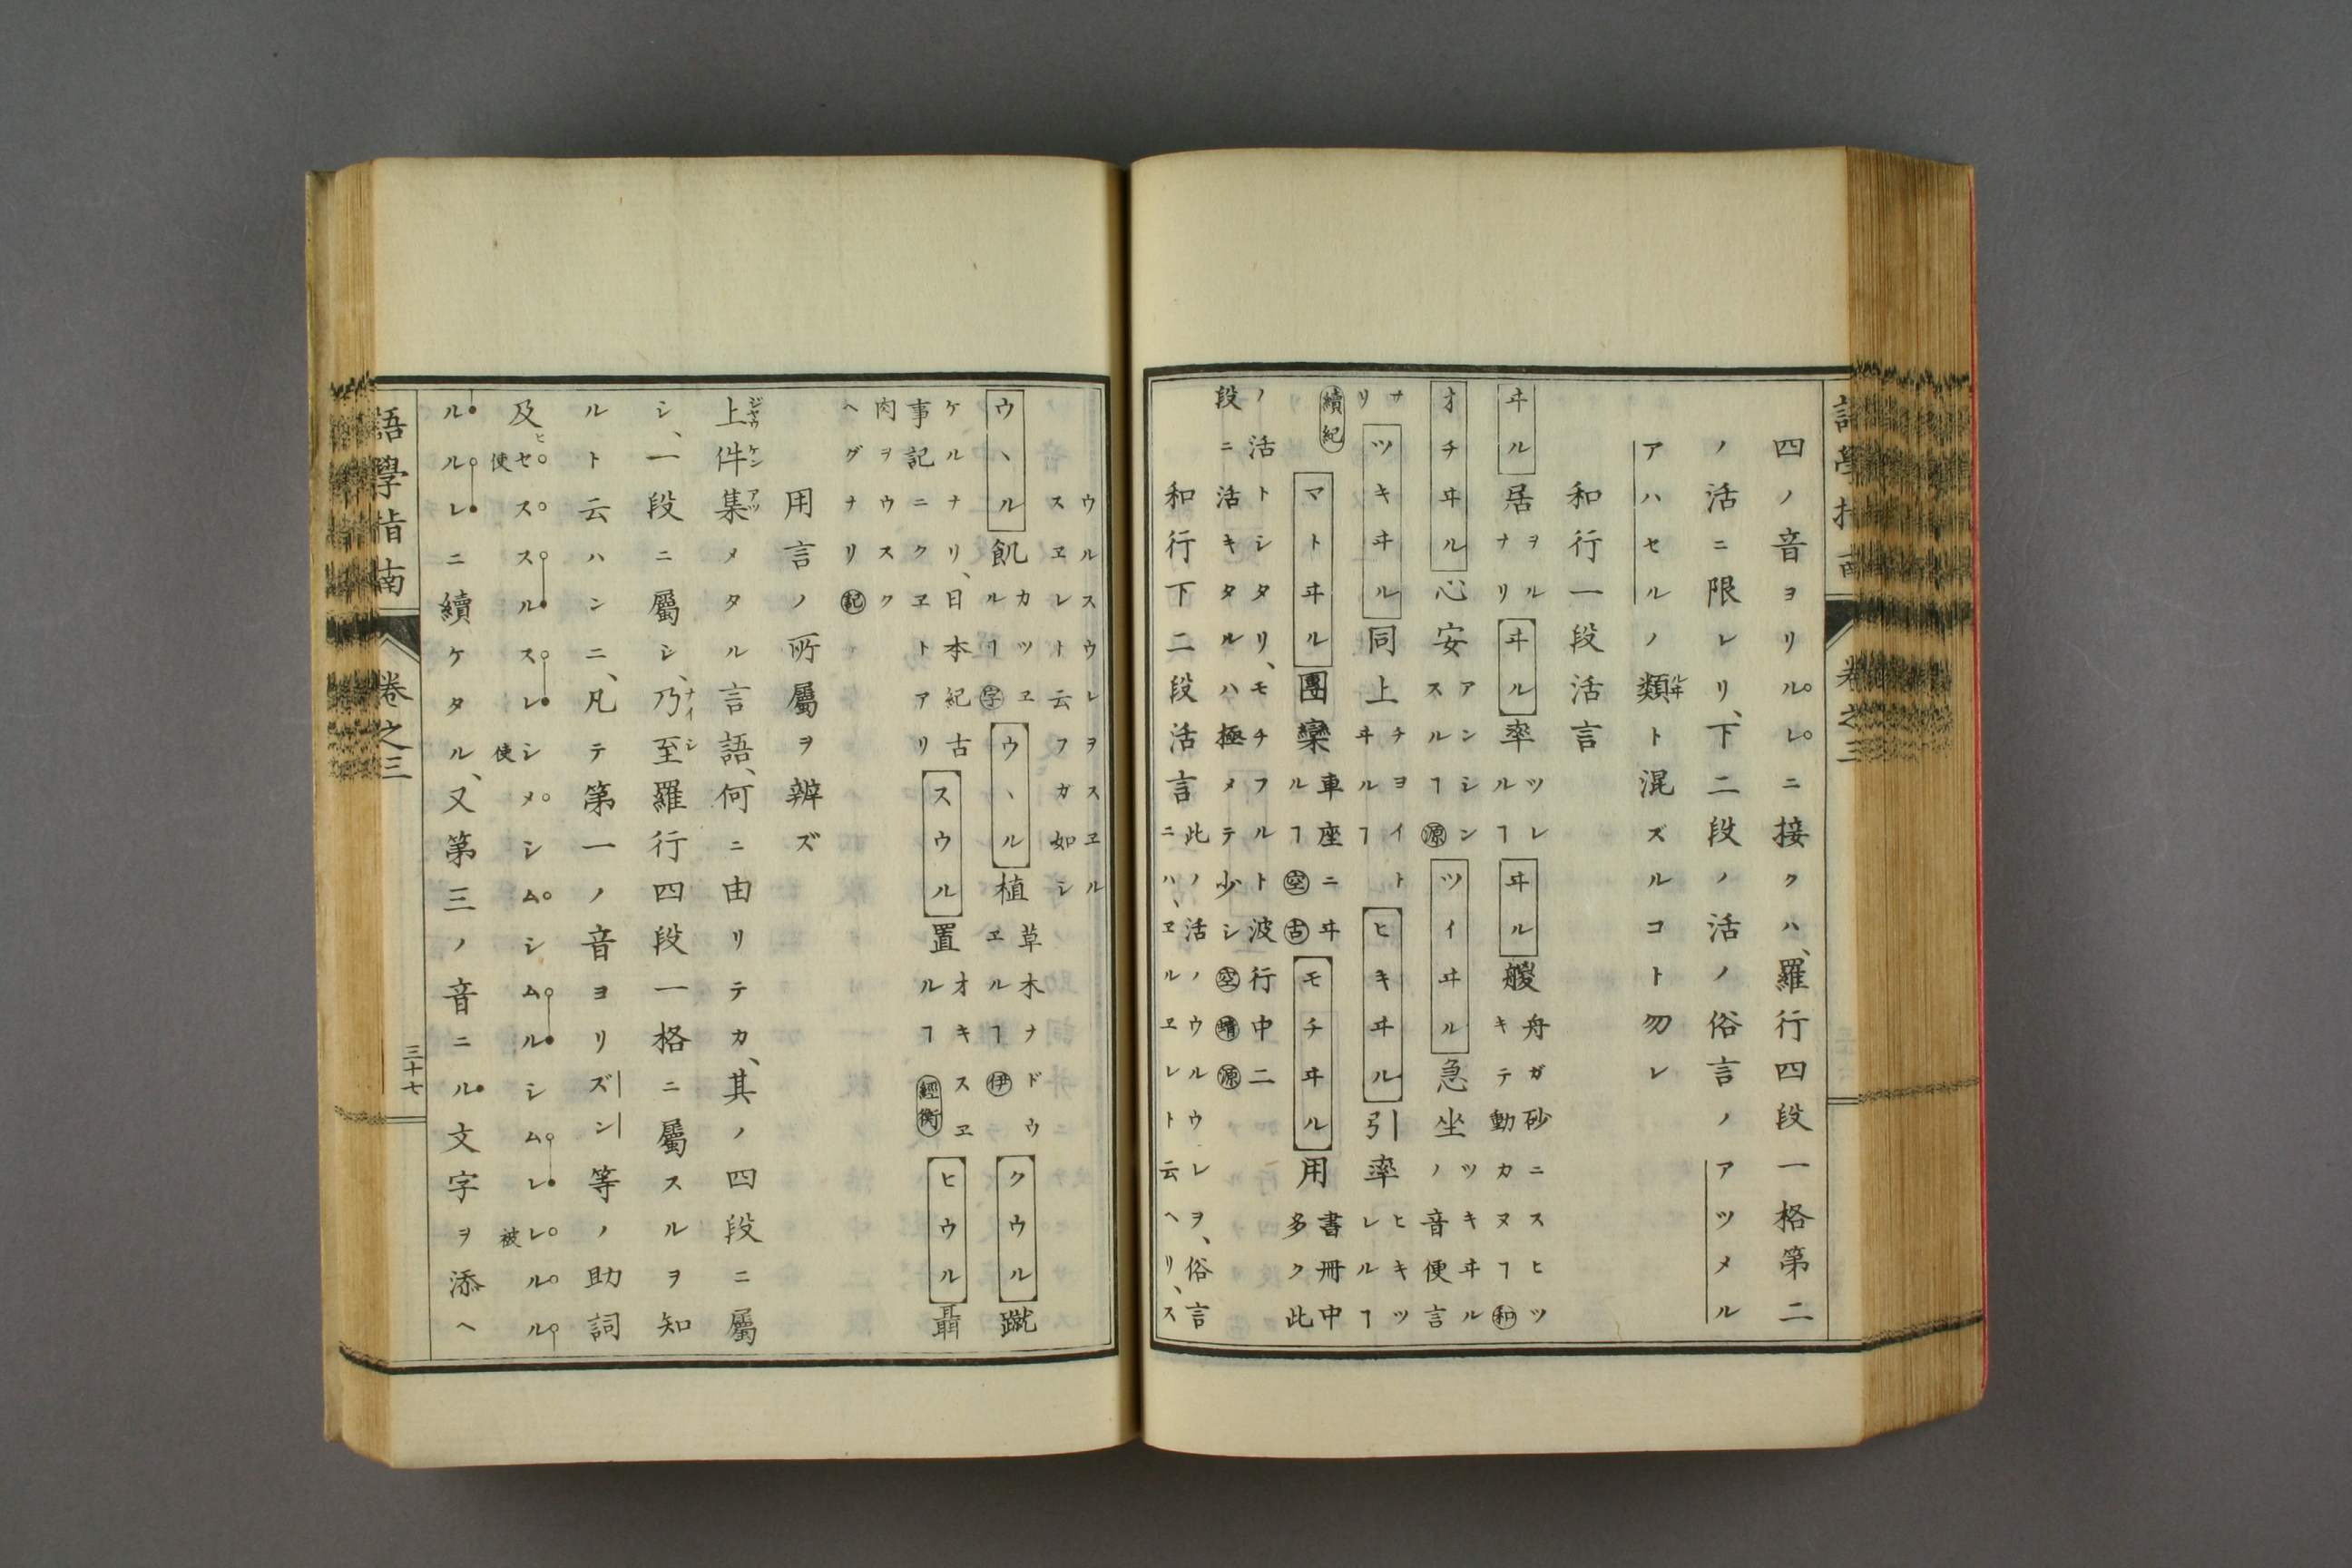 四ノ音ヨリルレニ接クハ、羅行四段一格第二
ノ活ニ限レリ、下二段ノ活ノ俗言ノアツメル
アハセルノ類ト混ズルコト勿レ
和行一段活言
ヰル居ヲルナリヰル率ツレルヿヰル艐舟ガ砂ニスヒツキテ動カヌヿ和
オチヰル心安アンシンスルヿ源ツイヰル急坐ツキヰルノ音便言
ナリツキヰル同上チヨイトヰルヿヒキヰル引率ヒキツレルヿ
續紀マトヰル團欒車座ニヰルヿ空古モチヰル用書冊中多ク此
ノ活トシタリ、モチフルト波行中二段ニ活キタルハ極メテ少シ空蜻源
和行下二段活言此ノ活ノウルウレヲ、俗言ニハ、ヱルヱレト云ヘリ、ス
ウルスウレヲスヱルスヱレト云フガ如シ
ウヽル飢カツヱルヿ字ウヽル植草木ナドウヱルヿ伊クウル蹴
ケルナリ、日本紀古事記ニクヱトアリスウル置オキスヱルヿ經衡ヒウル聶
肉ヲウスクヘグナリ記
用言ノ所屬ヲ辨ズ
上件集メタル言語、何ニ由リテカ、其ノ四段ニ屬
シ、一段ニ屬シ、乃至羅行四段一格ニ屬スルヲ知
ルト云ハンニ、凡テ第一ノ音ヨリズン等ノ助詞
及ヒ使セススルスレ使シメシムシムルシムレ被レルル
ルルレニ續ケタル、又第三ノ音ニル文字ヲ添ヘ
語學指南
卷之三
三十七
語學指南
卷之三